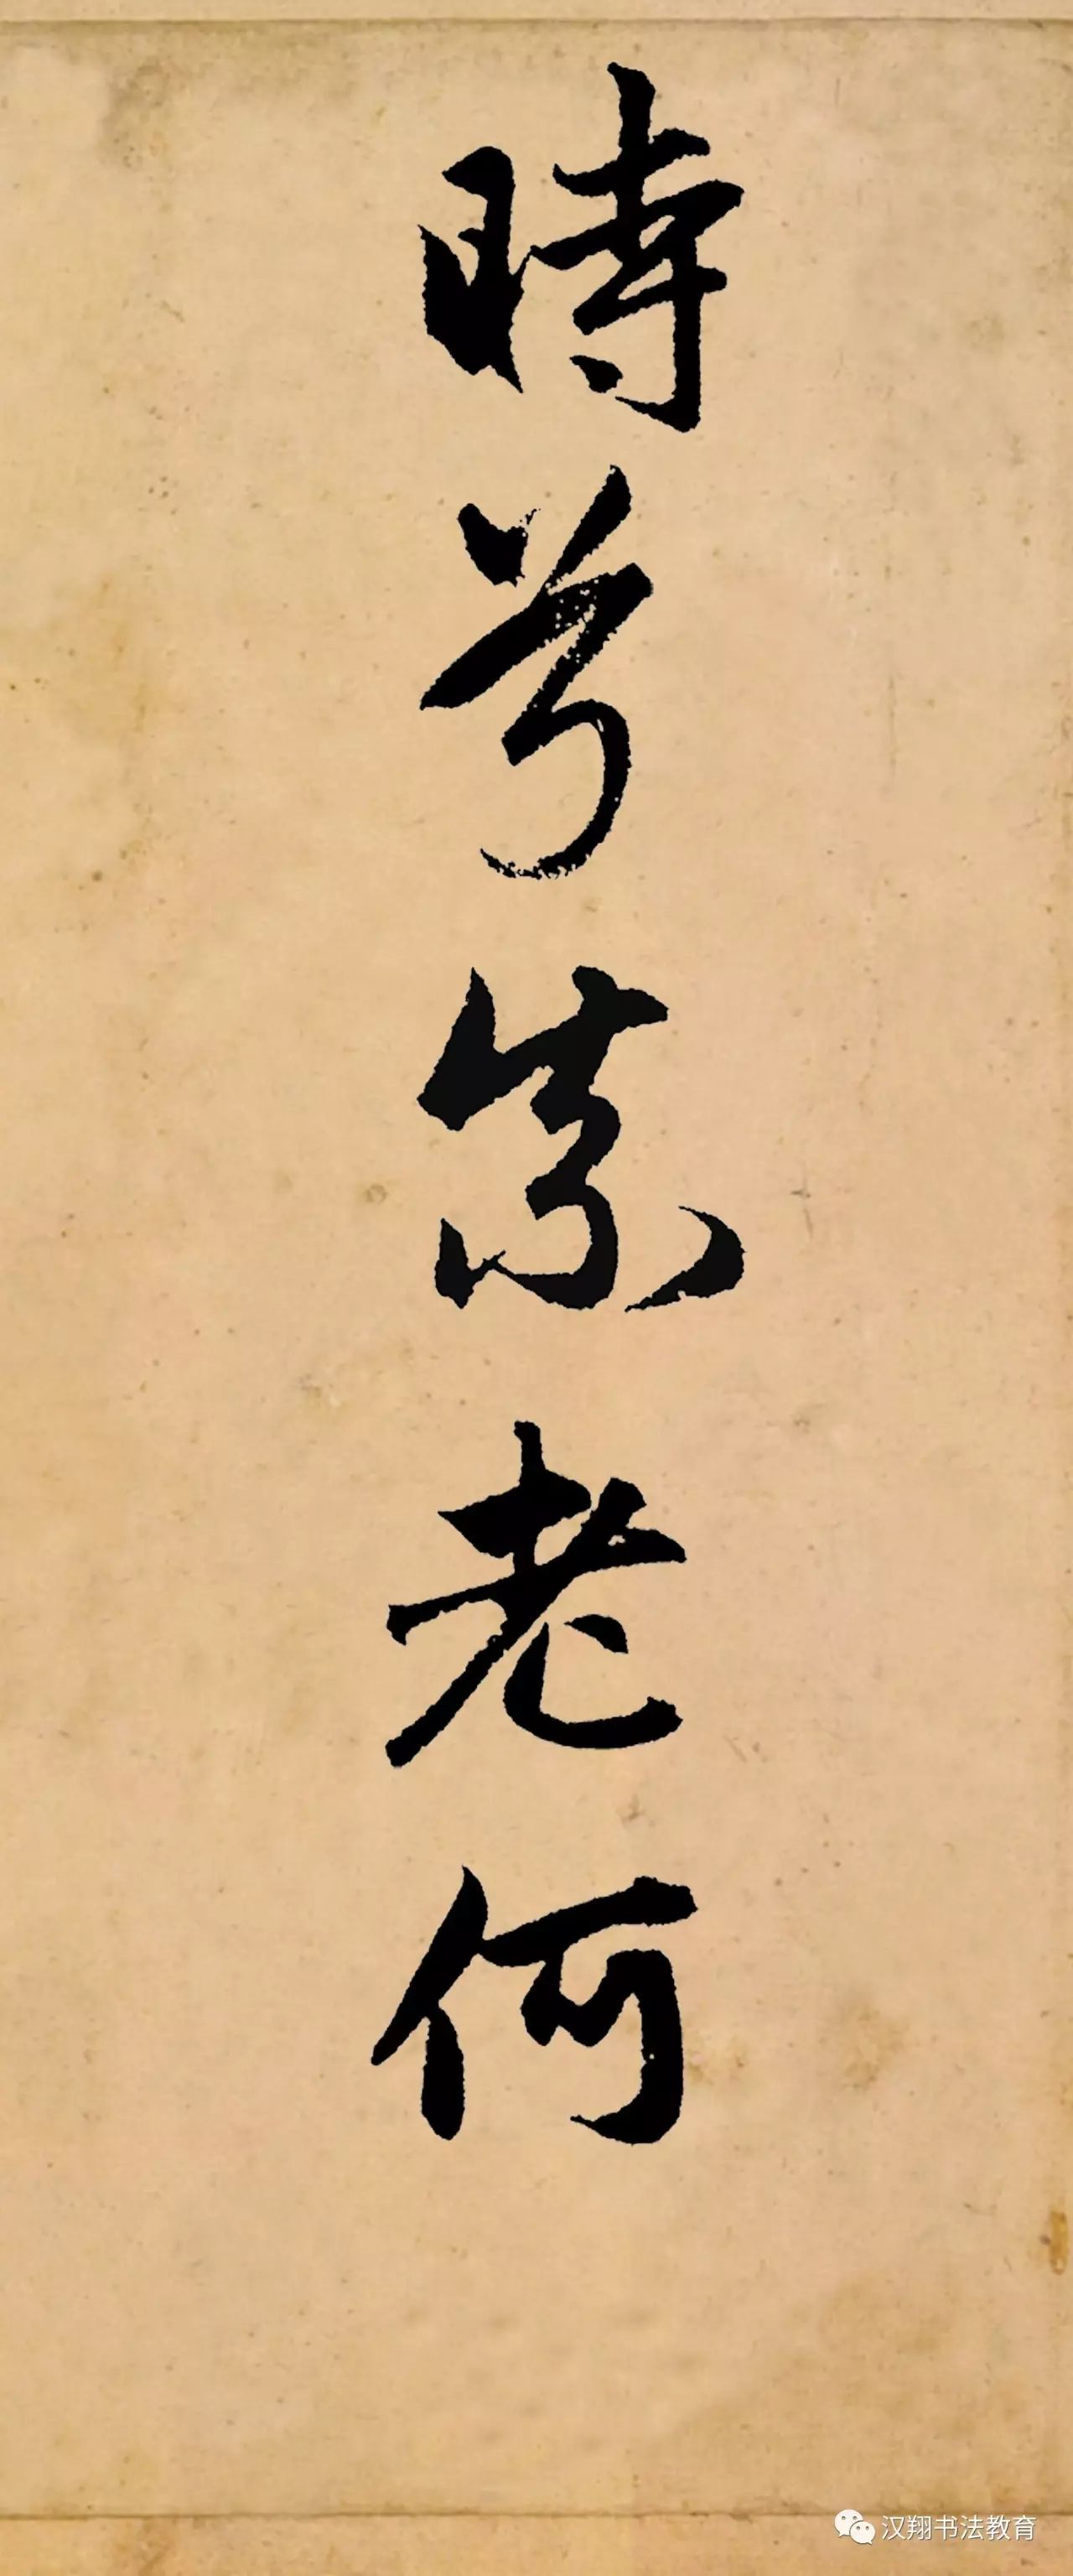 時兮奈老何
汉翔书法教育